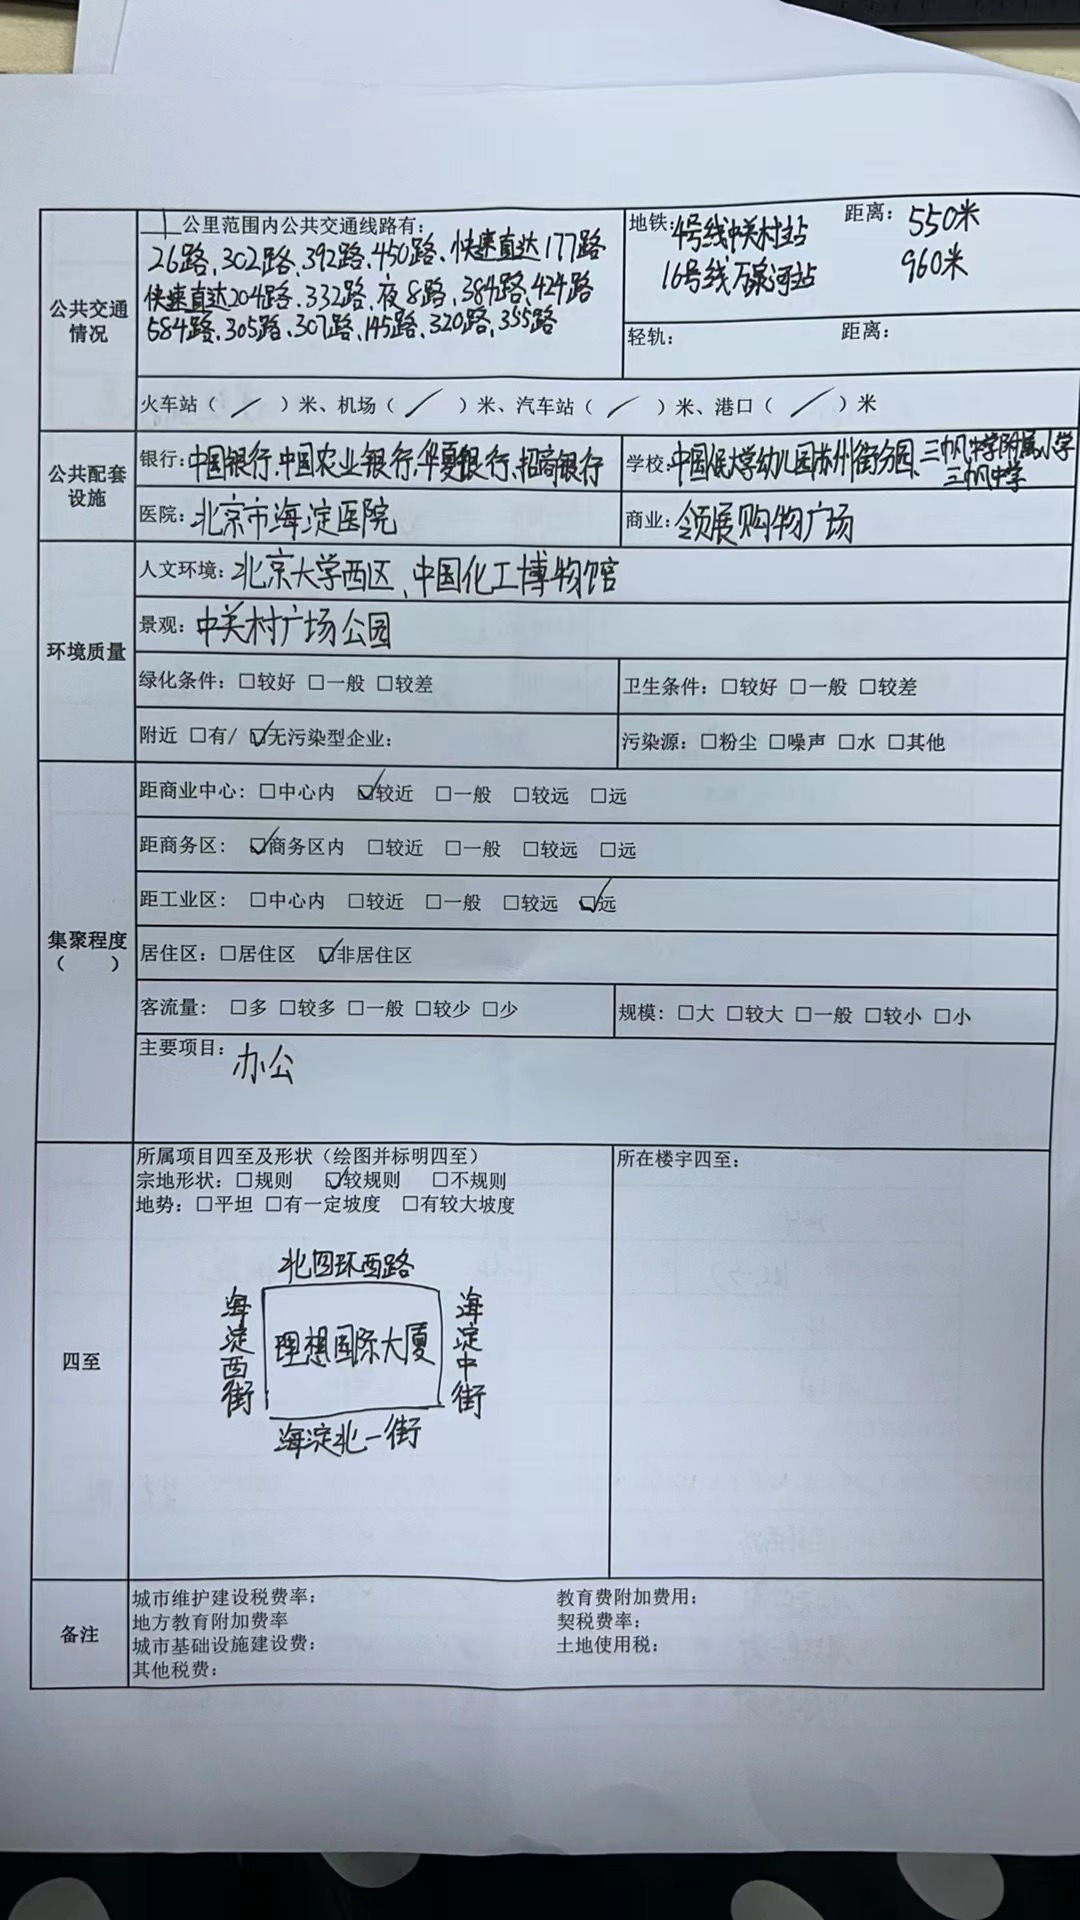 一公里范围内公共交通线路有:
26路、302路、392路、450路、快速直达177路
快速直达204路、332路、夜8路、384路、424路
584路、305路、307路、145路、320路、355路
地铁:4号线中关村站 距离: 550米
16号线苏州街站 960米
轻轨: 距离:
公共交通
情况
火车站( / )米、机场( / )米、汽车站( / )米、港口( / )米
公共配套
设施
银行:中国银行、中国农业银行、华夏银行、招商银行
学校:中国人民大学幼儿园苏州街分园、三帆中学附属小学
三帆中学
医院:北京市海淀医院
商业:领展购物广场
环境质量
人文环境:北京大学西区、中国化工博物馆
景观:中关村广场公园
绿化条件:□较好 □一般 □较差
卫生条件:□较好 □一般 □较差
附近 □有/ ☑无污染型企业:
污染源:□粉尘 □噪声 □水 □其他
集聚程度
( )
距商业中心:□中心内 ☑较近 □一般 □较远 □远
距商务区: ☑商务区内 □较近 □一般 □较远 □远
距工业区: □中心内 □较近 □一般 □较远 ☑远
居住区:□居住区 ☑非居住区
客流量: □多 □较多 □一般 □较少 □少
规模:□大 □较大 □一般 □较小 □小
主要项目:办公
四至
所属项目四至及形状(绘图并标明四至)
宗地形状:□规则 ☑较规则 □不规则
地势:□平坦 □有一定坡度 □有较大坡度
北四环西路
海淀西街
理想国际大厦
海淀中街
海淀北一街
所在楼宇四至:
备注
城市维护建设税费率: 教育费附加费用:
地方教育附加费率 契税费率:
城市基础设施建设费: 土地使用税:
其他税费: